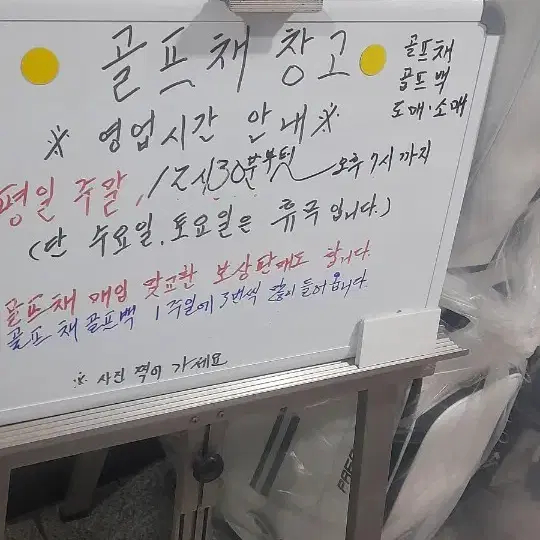 골프채 창고
골프채
골프백
도매·소매
※ 영업시간 안내 ※
평일 주말, 12시30분부터 오후 7시까지
(단 수요일, 토요일은 휴무입니다.)
골프채 매입 맞교환 보상판매도 합니다.
골프채 골프백 1주일에 3번씩 많이 들어옵니다.
※ 사진 찍어 가세요